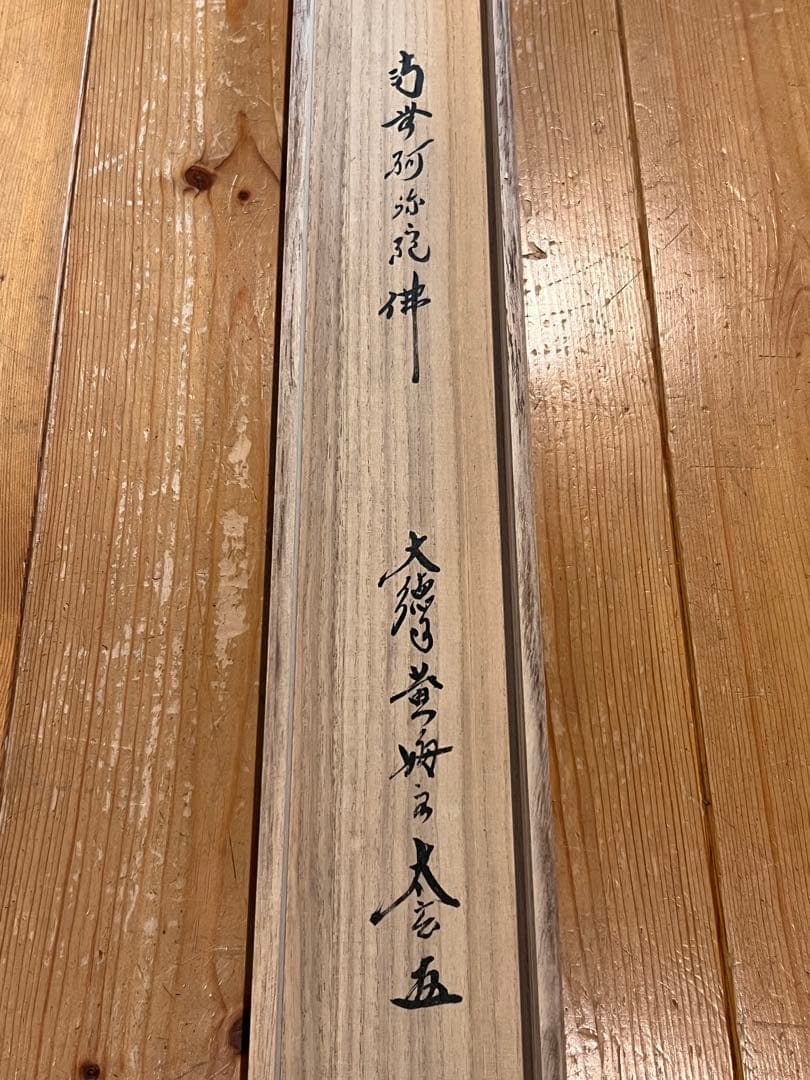 南無阿弥陀佛
大徳寺黄梅院太玄